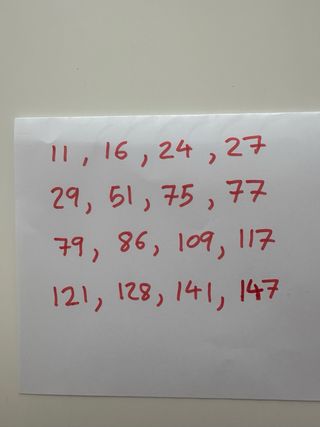 11, 16, 24, 27
29, 51, 75, 77
79, 86, 109, 117
121, 128, 141, 147